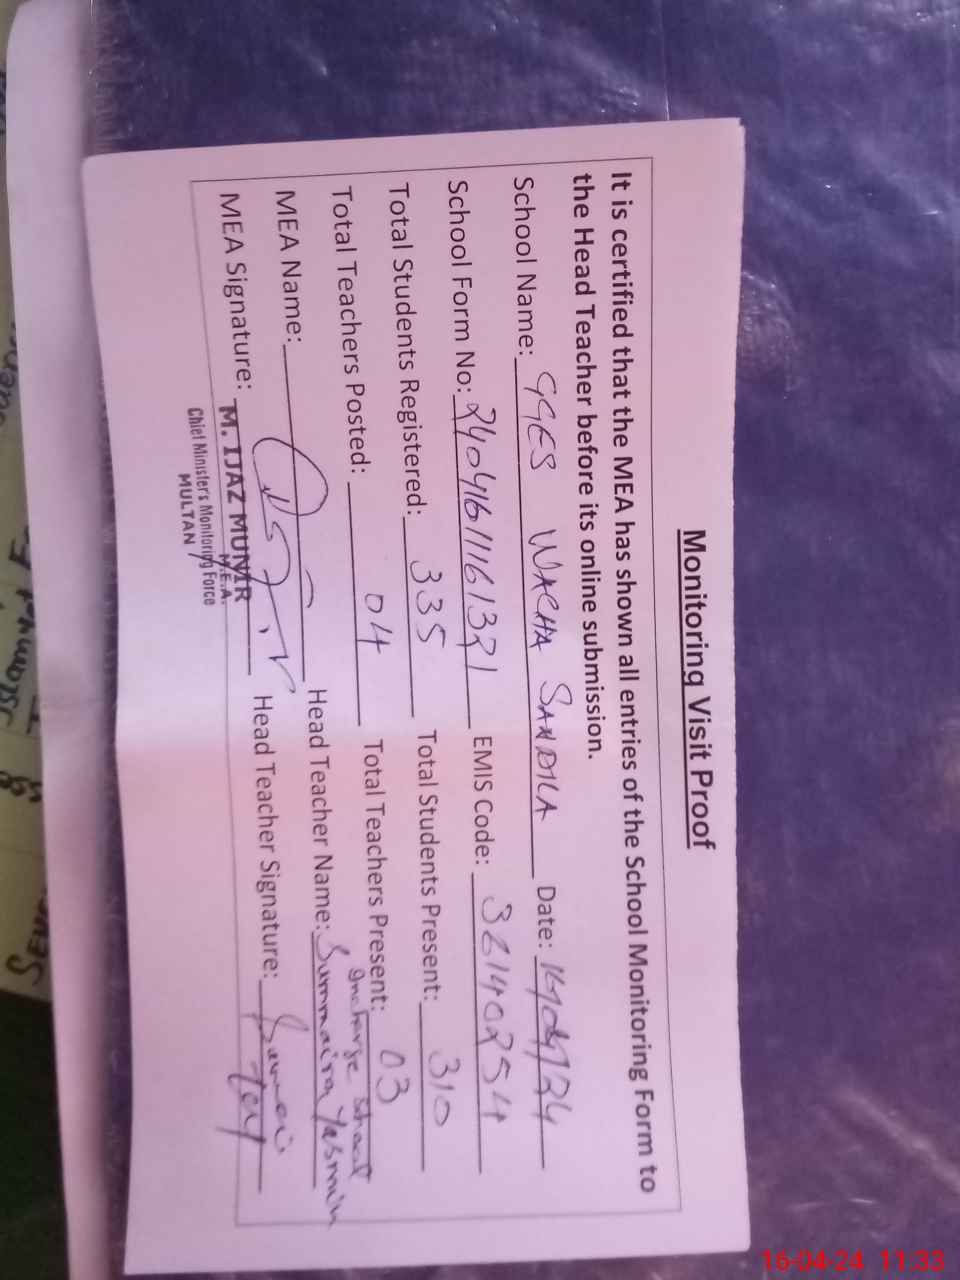 Monitoring Visit Proof
It is certified that the MEA has shown all entries of the School Monitoring Form to
the Head Teacher before its online submission.
School Name: GGES WACHA SANDILA Date: 16/04/24
School Form No: 24041611161321 EMIS Code: 36140254
Total Students Registered: 335 Total Students Present: 310
Total Teachers Posted: 04 Total Teachers Present: 03
Incharge School
MEA Name: Head Teacher Name: Summaira Yasmin
MEA Signature: Head Teacher Signature:
M. IJAZ MUNIR
M.E.A.
Chief Minister's Monitoring Force
MULTAN
16-04-24 11:33